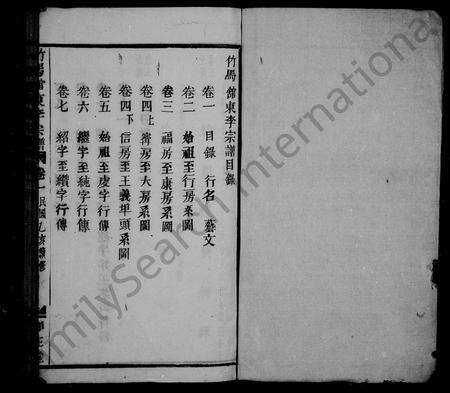 竹馬館東李宗譜目錄
卷一 目錄 行名 藝文
卷二 始祖至行房系圖
卷三 福房至康房系圖
卷四上 房至大房系圖
卷四下 信房至王義埠頭系圖
卷五 始祖至虔字行傳
卷六 繼字至純字行傳
卷七 紹字至續字行傳
竹馬館東李宗譜 卷一
milySearch International